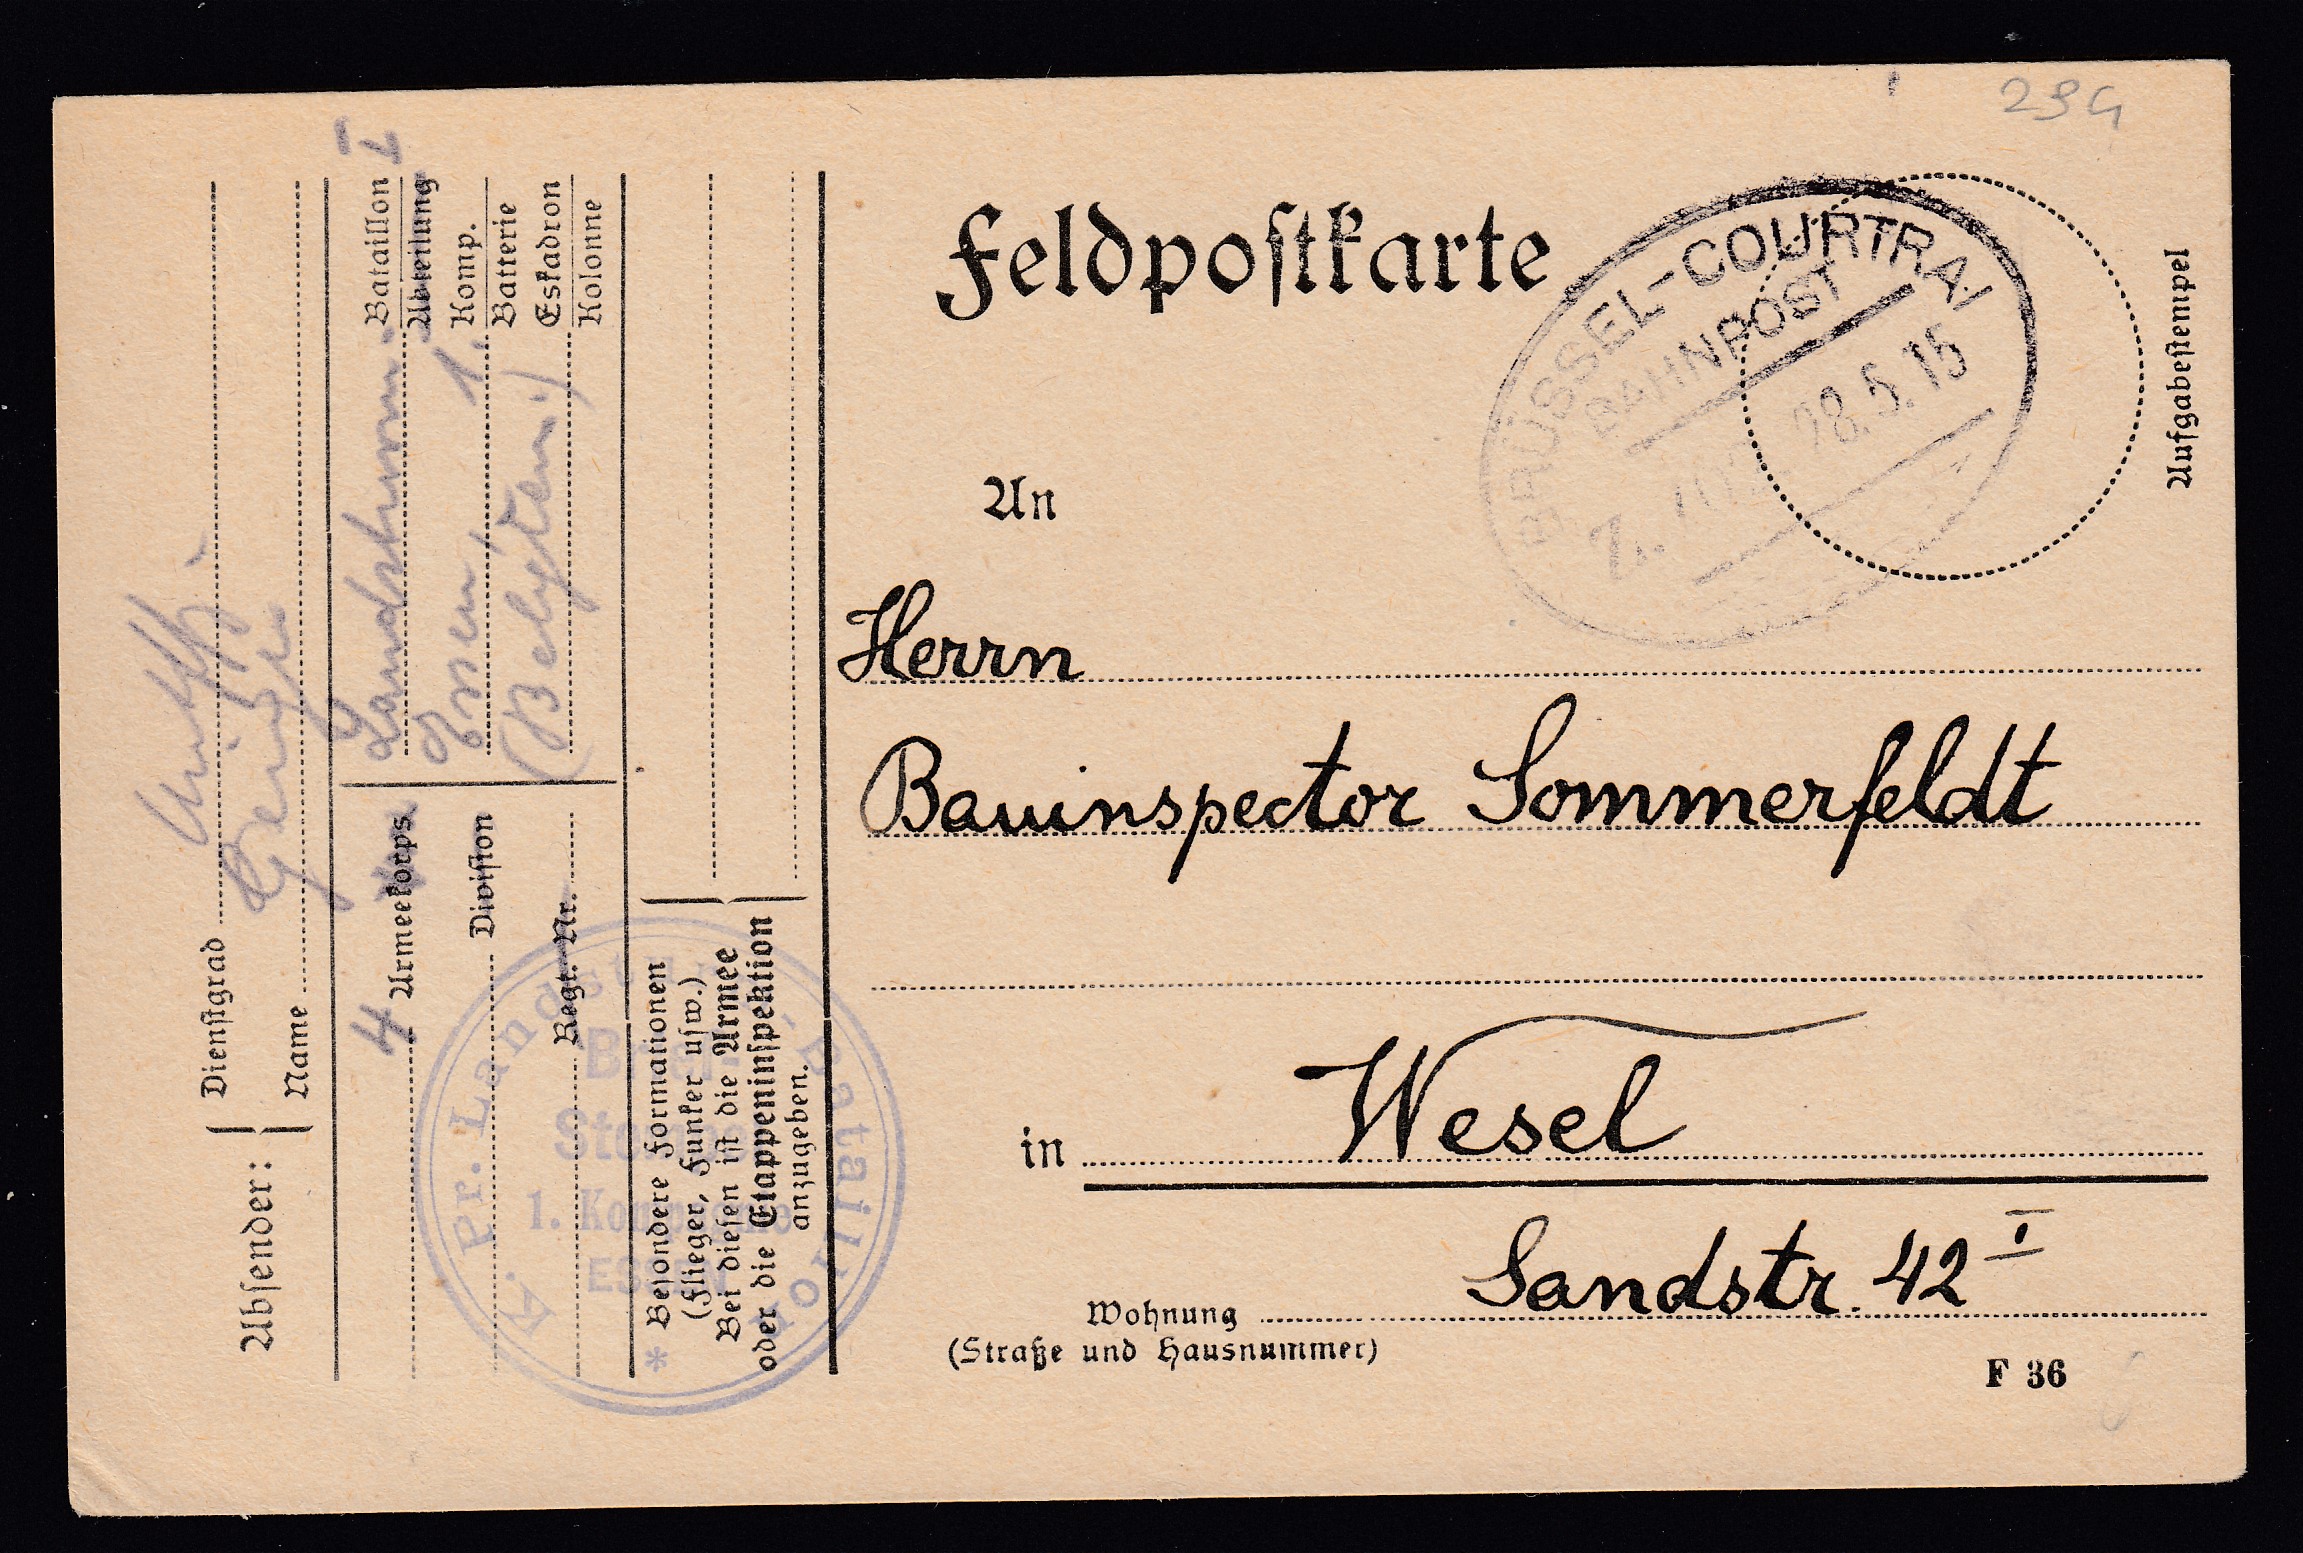 29G
Feldpostkarte
BRÜSSEL-COURTRAI
BAHNPOST
28.5.15
Aufgabestempel
An
Herrn
Bauinspector Sommerfeldt
in Wesel
Wohnung Sandstr. 42 I
(Straße und Hausnummer)
F 36
Absender:
Dienstgrad
Name
4 Armeekorps
Division
Regt. Nr.
Landsturm Bataillon I
Abteilung
Essen, 1. Komp.
Batterie
(Belgien) Eskadron
Kolonne
* Besondere Formationen
(Flieger, Funker usw.)
Bei diesen ist die Armee
oder die Etappeninspektion
anzugeben.
K. Pr. Landst. Bataillon
Brief
Stempel
1. Kompagnie
ESSEN